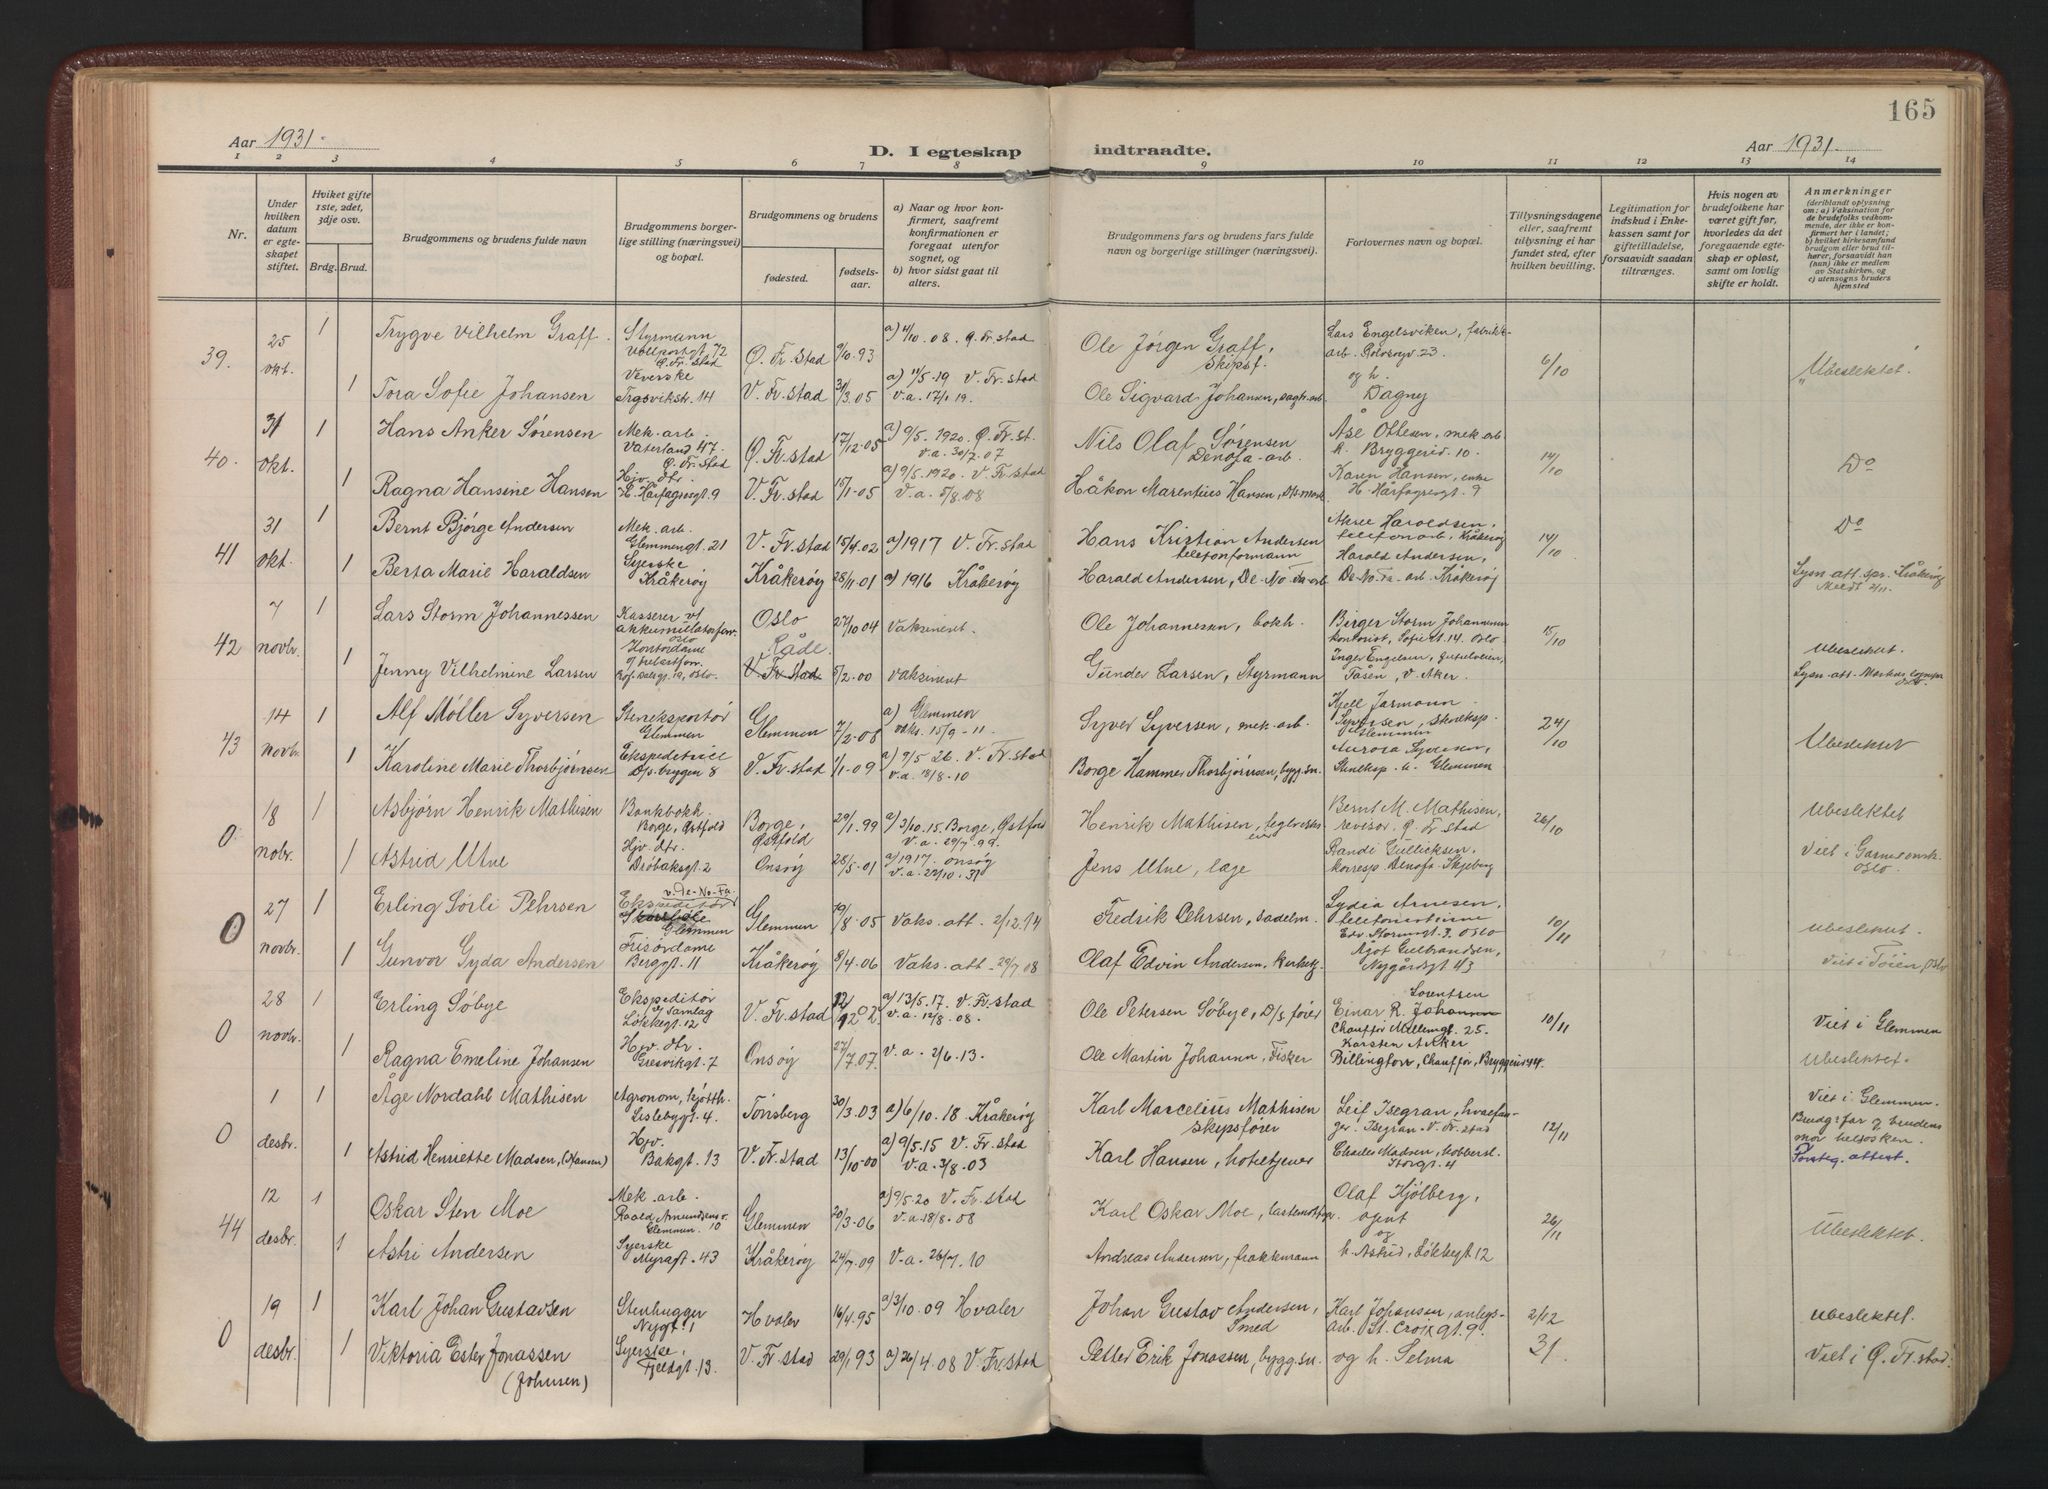 165
Aar 1931.
D. I egteskap
indtraadte.
Aar 1931.
1 2 3 4 5 6 7 8 9 10 11 12 13 14
Nr.
Under hvilken datum er egteskapet stiftet.
Hviket gifte 1ste, 2det, 3dje osv.
Brdg. Brud.
Brudgommens og brudens fulde navn
Brudgommens borgerlige stilling (næringsvei) og bopæl.
Brudgommens og brudens
fødested.
fødselsaar.
a) Naar og hvor konfirmert, saafremt konfirmationen er foregaat utenfor sognet, og
b) hvor sidst gaat til alters.
Brudgommens fars og brudens fars fulde navn og borgerlige stillinger (næringsvei).
Forlovernes navn og bopæl.
Tillysningsdagene eller, saafremt tillysning ei har fundet sted, efter hvilken bevilling.
Legitimation for indskud i Enkekassen samt for giftetilladelse, forsaavidt saadan tiltrænges.
Hvis nogen av brudefolkene har været gift før, hvorledes da det foregaaende egteskap er opløst, samt om lovlig skifte er holdt.
Anmerkninger
(deriblandt oplysning om: a) Vaksination for de brudefolks vedkommende, der ikke er konfirmert her i landet; b) hvilket kirkesamfund brudgom eller brud tilhører, forsaavidt han (hun) ikke er medlem av Statskirken, og c) utensogns bruders hjemsted
39. 25 okt. 1 Trygve Vilhelm Graff. Styrmann Ø. Fr. stad Ø. Fr. stad 9/10.93 a) 4/10.08. Ø. Fr. stad Ole Jørgen Graff, Skipsf. Lars Engelsviken, fabrikk-arb. 23. 6/10 Ubeslektet.
1 Tora Sofie Johansen Veverske 14 V. Fr. stad 31/3.05 V. Fr. stad Ole Sigvard Johansen, sagb. arb. og h. Dagny
40. 31 okt. 1 Hans Anker Sørensen Mek. arb. Vaterland 47. Ø. Fr. stad Ø. Fr. stad 17/12.05 a) 9/5.1920. Ø. Fr. st. v.a. 30/7.07 Nils Olaf Sørensen Denofa-arb. Åse Ottesen, mek. arb. h. Bryggeriv. 10. 14/10 Do
1 Ragna Hansine Hansen Hjv. dtr. H. Hårfagresgt. 9 V. Fr. stad 15/1.05 a) 9/5.1920. V. Fr. stad v.a. 5/8.08 Håkon Marentius Hansen, Karen Hansen, enke H. Hårfagresgt. 9
41 31 okt. 1 Bernt Bjørge Andersen Mek. arb. Glemmengt. 21 V. Fr. stad 15/4.02 a) 1917 V. Fr. stad Hans Kristian Andersen telefonformann Haroldsen, telefonarb. Kråkerøy 14/10 Do
1 Berta Marie Haraldsen Syerske Kråkerøy Kråkerøy 28/11.01 a) 1916 Kråkerøy Harald Andersen, De-No-Fa-arb. Harald Andersen, De-No-Fa-arb. Kråkerøy Lysn. att. spr. Kråkerøy Meldt 2/11.
42 7 novbr. 1 Lars Storm Johannessen Kasserer v/ akkumulatorfabr. Oslo Oslo 27/10 04 Vaksinert. Ole Johannessen, bokh. Birger Storm Johannessen kontorist, Sofie st. 14. Oslo 15/10 Ubeslektet.
1 Jenny Vilhelmine Larsen Kontordame Oslo Råde. V. Fr. Stad 5/2.00 Vaksinert Gunder Larsen, Styrmann Inger Engelsen, Tåsen, V. Aker Lysn. att. Markus sognepr. Oslo
43 14 novbr. 1 Alf Møller Syversen Steneksportør Glemmen Glemmen 7/2.08 a) Glemmen vaks. 15/9-11. Syver Syversen, mek. arb. Kjell Jarmann Syversen, Steneksp. Glemmen 24/10 Ubeslektet
1 Karoline Marie Thorbjørnsen Ekspeditrise D/s.bryggen 8 V. Fr. stad 1/1.09 a) 9/5 26. V. Fr. stad v.a. 18/8.10 Børge Hammer Thorbjørnsen, byggsn. Aurora Syversen, Steneksp. h. Glemmen
0 18 nobr. 1 Asbjørn Henrik Mathisen Bankbokh. Borge, Østfold Borge, Østfold 29/1.99 a) 3/10.15. Borge, Østfold v.a. 29/7.99. Henrik Mathisen, teglverkseier Bernt M. Mathisen, revisor. Ø. Fr. stad 26/10 Ubeslektet
1 Astrid Utne Hjv. dtr. Drøbaksgt. 2 Onsøy 28/5.01 a) 1917. Onsøy v.a. 22/10.31 Jens Utne, læge Randi Gullicksen, korresp. Denofa. Skjeberg Viet i Garnisonsk. Oslo.
0 27 novbr. 1 Erling Sørli Pehrsen Ekspeditør v. De-No-Fa. Glemmen Glemmen 19/8.05 Vaks. att. 2/12.14 Fredrik Pehrsen, sadelm. Lydia Arnesen, telefonistinne Edv. Stormsgt. 3. Oslo 10/11 Ubeslektet.
1 Gunvor Gyda Andersen Frisørdame Berggt. 11 Kråkerøy 8/4.06 Vaks. att. 29/7.08 Olaf Edvin Andersen, Ågot Gulbrandsen, Nygårdsgt. 43 Viet i Tøien, Oslo
0 28 novbr. 1 Erling Søbye Ekspeditør v/ Samlag Løkkegt. 12 V. Fr. stad 12/ 02 a) 13/5.17. V. Fr. stad v.a. 12/8.08. Ole Petersen Søbye, D/s fører Einar R. Johann Sørensen Chauffør Møllemgt. 25. 10/11 Viet i Glemmen
1 Ragna Emeline Johansen Hjv. dtr. Gresvikgt. 7 Onsøy 27/7.07. V.a. 2/6.13. Ole Martin Johann, Fisker Karsten Anker Billington, Chauffør, Bryggeriv. 44. Ubeslektet.
0 1 desbr. 1 Åge Nordahl Mathisen Agronom, Lislebygt. 4. Tønsberg 30/3.03 a) 6/10.18 Kråkerøy Karl Marcelius Mathisen skipsfører Leif Isegran, hvalfanger. Isegran. V. Fr. stad 12/11 Viet i Glemmen. Brudg. far og brudens mor helsøsken.
1 Astrid Henriette Madsen, (Hansen) Hjv. Bakgt. 13 V. Fr. stad 13/10-00 a) 9/5.15 V. Fr. stad v.a. 3/8.03 Karl Hansen, hoteltjener Charles Madsen, Storgt. 4 attest.
44 12 desbr. 1 Oskar Sten Moe Mek. arb. Roald Amundsens v. 10 Glemmen. Glemmen 20/3.06 a) 9/5.20 V. Fr. stad v.a. 18/8.08 Karl Oskar Moe, lastemottager. Olaf Kjølberg, agent 26/11 Ubeslektet.
1 Astri Andersen Syerske Myragt. 43 Kråkerøy 24/7.09 V.a. 26/7.10 Andreas Andersen, frakkemann og h. Astrid, Løkkegt 12
0 19 desbr. 1 Karl Johan Gustavsen Stenhugger Nygt. 1 Hvaler 16/4.95 a) 3/10.09 Hvaler Johan Gustav Andersen, Smed Karl Johansen, anlegs-arb. St. Croix gt. 9. 2/12 Ubeslektet.
1 Viktoria Ester Jonassen (Johnsen) Syerske, Fjeldgt. 13. V. Fr. stad 29/1 93 a) 26/4.08 V. Fr. stad Petter Erik Jonassen, byggsn. og h. Selma 31. Viet i Ø. Fr. stad.